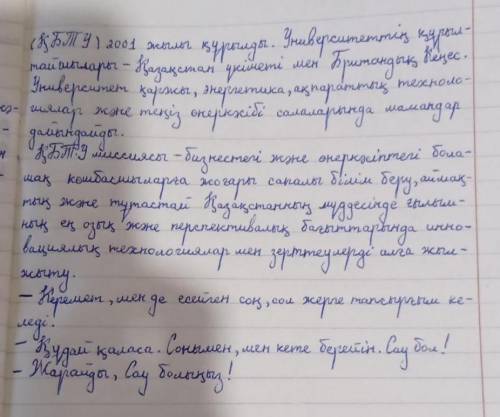 (ҚБТУ) 2001 жылы құрылды. Университеттің құрыл-
тайшылары - Қазақстан үкіметі мен Британдық Кеңес.
Университет қаржы, энергетика, ақпараттық техноло-
гиялар және теңіз өнеркәсібі салаларында мамандар
дайындайды.
ҚБТУ миссиясы - бизнестегі және өнеркәсіптегі бола-
шақ көшбасшыларға жоғары сапалы білім беру, аймақ-
тың және тұтастай Қазақстанның мүддесінде ғылым-
ның ең озық және перспективалық бағыттарында инно-
вациялық технологиялар мен зерттеулерді алға жыл-
жыту.
- Керемет, мен де есейген соң, сол жерге тапсырғым ке-
леді!
- Құдай қаласа. Сонымен, мен кете берейін. Сау бол!
- Жарайды, Сау болыңыз!